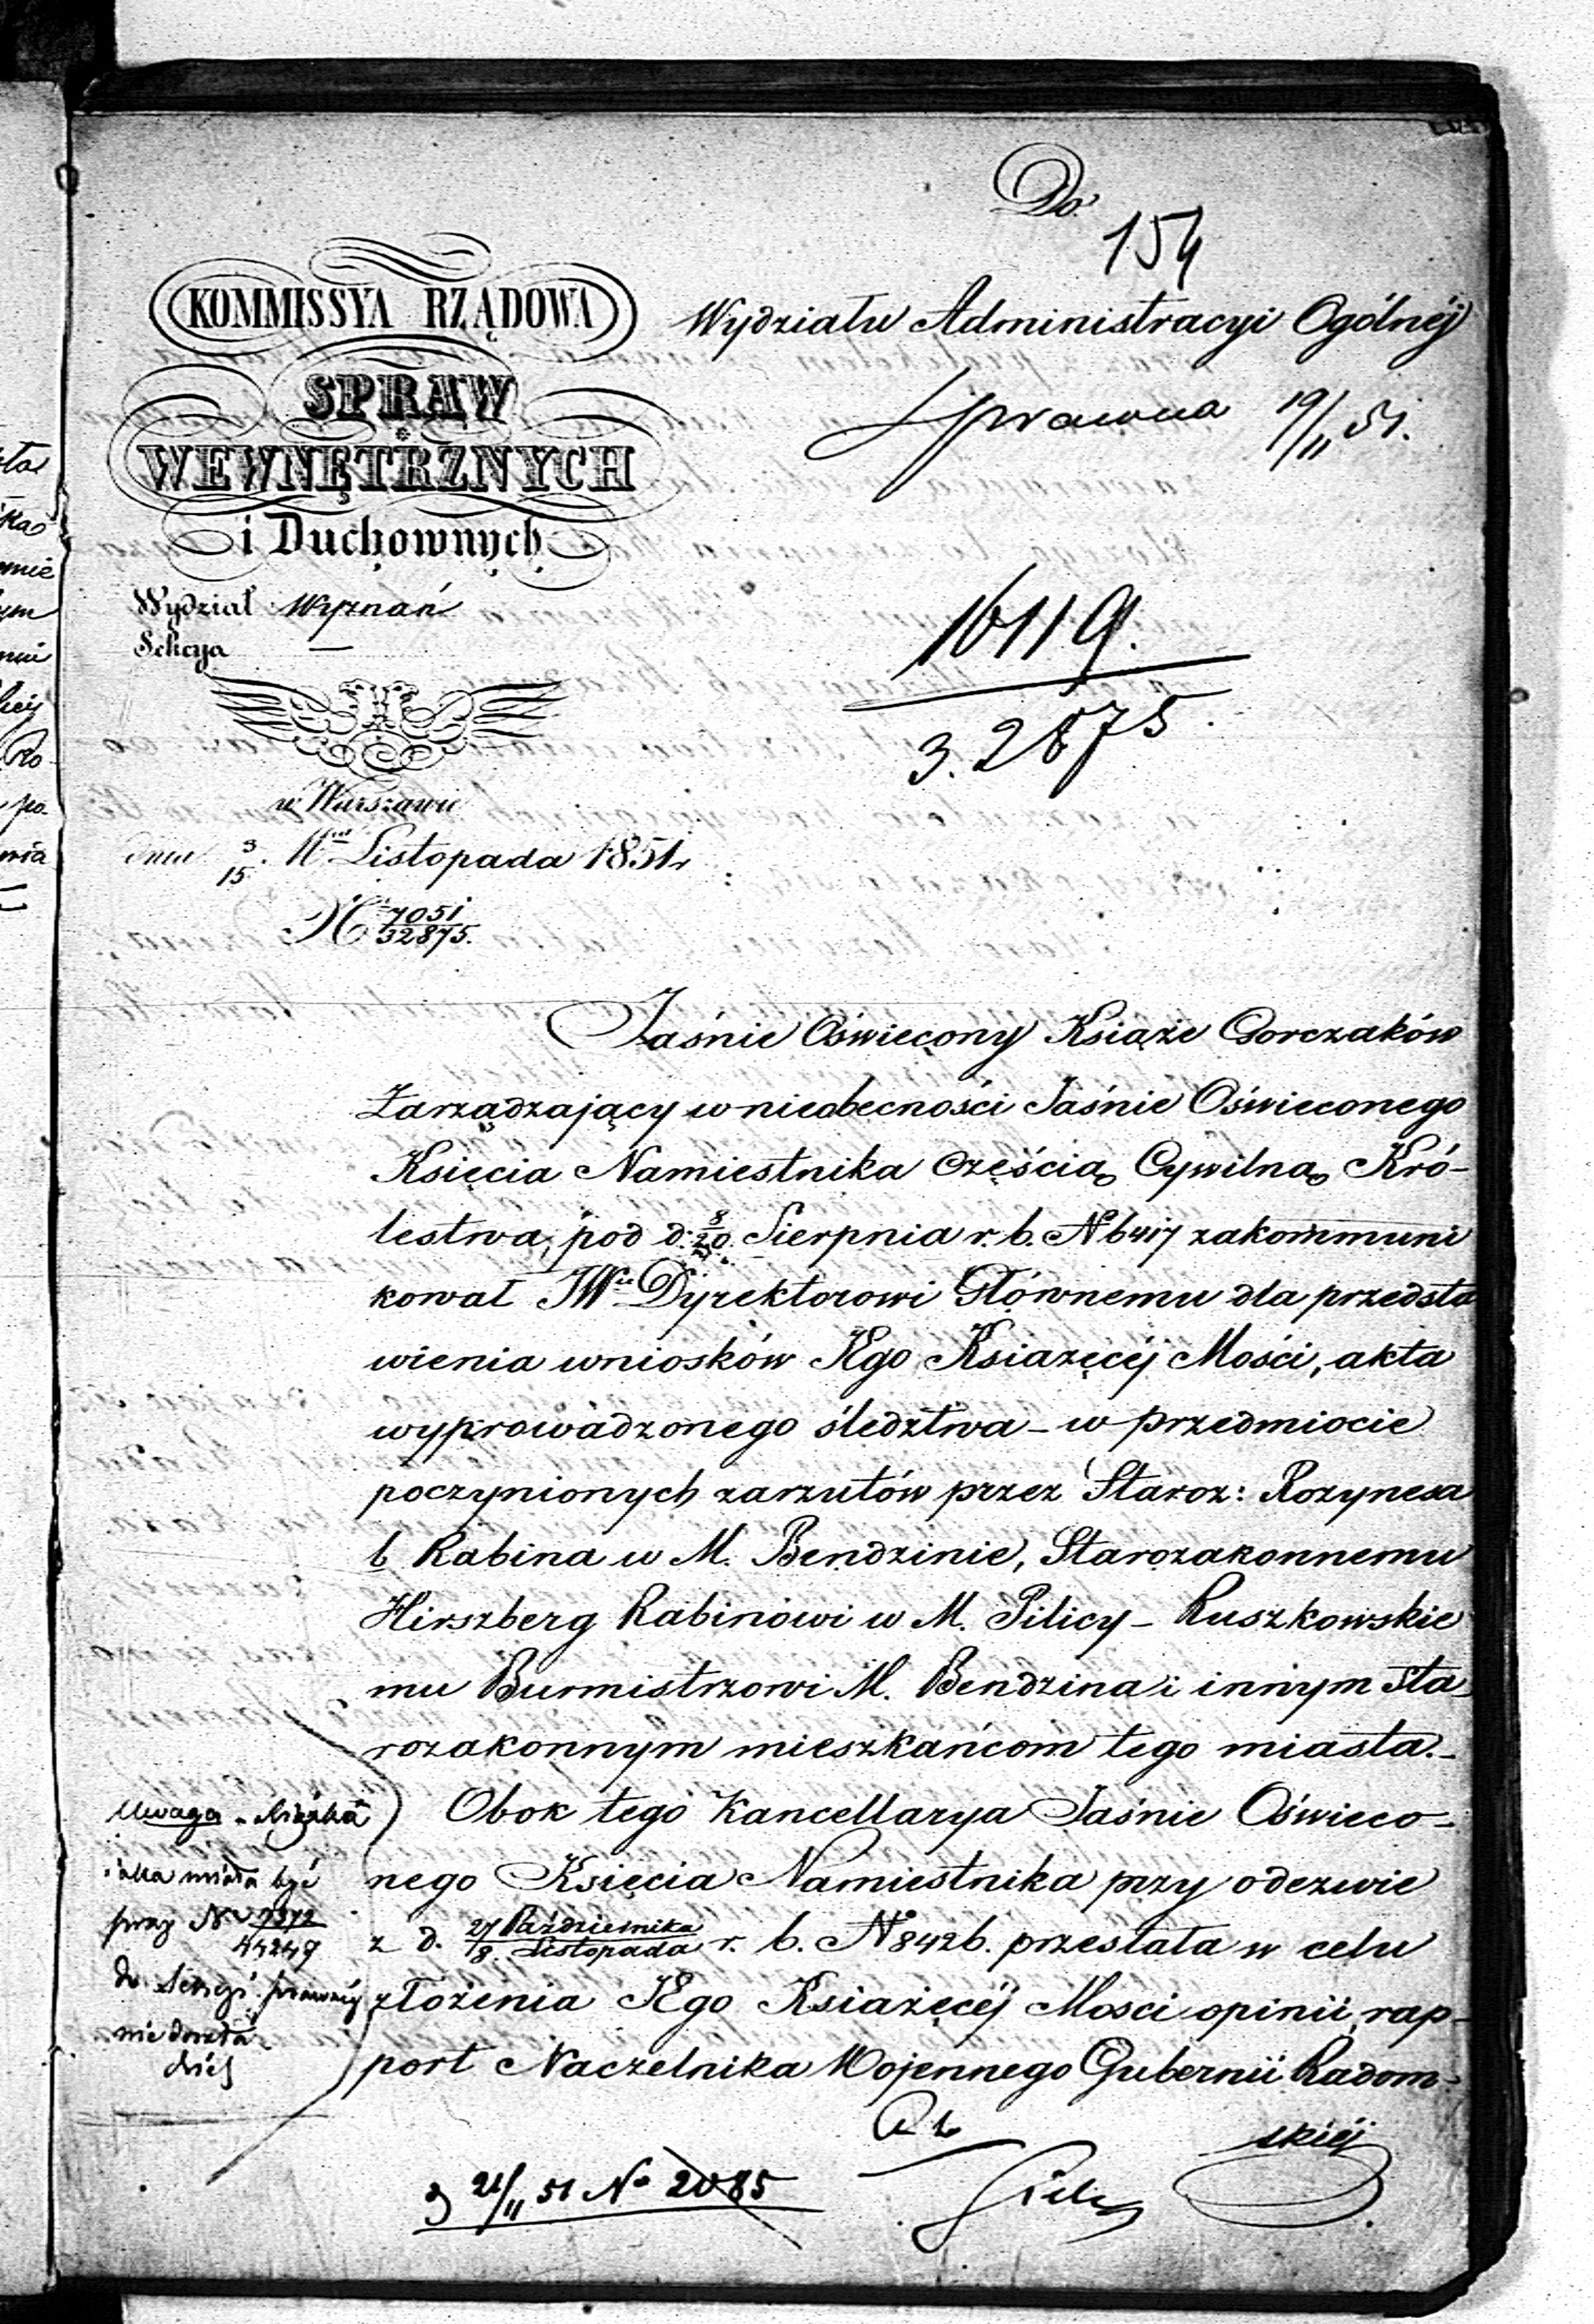 Do
154
KOMMISSYA RZĄDOWA
SPRAW
WEWNĘTRZNYCH
i Duchownych
Wydział Wyznań
Sekcya —
w Warszawie
dnia 3/15 Mca Listopada 1851 r
N 7051/32875.
Wydziału Administracyi Ogólnéj
Sprawna 19/11 51.
16119.
3.2875.
Jaśnie Oświecony Książe Gorczaków
Zarządzający w nieobecności Jaśnie Oświeconego
Księcia Namiestnika Częścią Cywilną Kró-
lestwa, pod d. 8/20 Sierpnia r. b. No 6417 zakommuni
kował JWu Dyrektorowi Głównemu dla przedsta
wienia wniosków JEgo Książęcéj Mości, akta
wyprowadzonego śledztwa – w przedmiocie
poczynionych zarzutów przez Staroz: Rozynesa
b Rabina w M. Bendzinie, Starozakonnemu
Hirszberg Rabinowi w M. Pilicy – Ruszkowskie
mu Burmistrzowi M. Bendzina i innym sta
rozakonnym mieszkańcom tego miasta. –
Obok tego Kancellarya Jaśnie Oświeco-
nego Księcia Namiestnika przy odezwie
z d. 27 Października/8 Listopada r. b. No 8426. przesłała w celu
złożenia JEgo Książęcéj Mosci opinii, rap-
port Naczelnika Wojennego Gubernii Radom-
skiéj
Uwaga –
miała być
przy No
44249
do Sekcyi prawnéj
nie doszła
3 21/11 51 No 2085